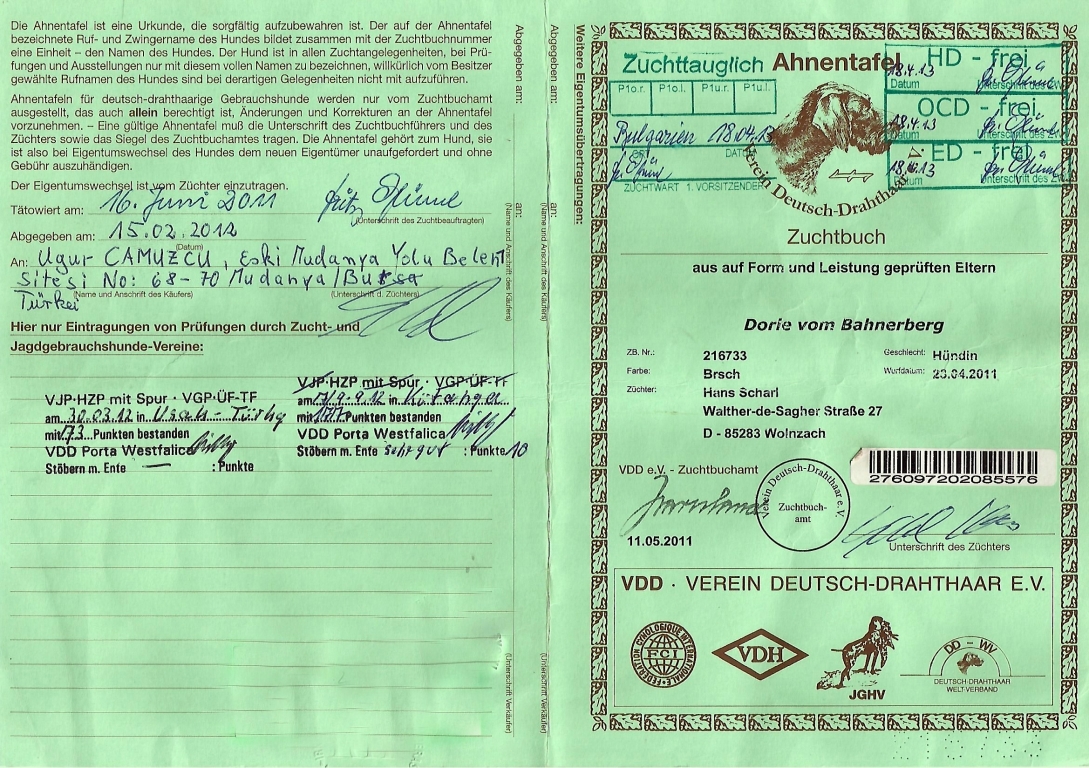 Die Ahnentafel ist eine Urkunde, die sorgfältig aufzubewahren ist. Der auf der Ahnentafel
bezeichnete Ruf- und Zwingername des Hundes bildet zusammen mit der Zuchtbuchnummer
eine Einheit – den Namen des Hundes. Der Hund ist in allen Zuchtangelegenheiten, bei Prü-
fungen und Ausstellungen nur mit diesem vollen Namen zu bezeichnen, willkürlich vom Besitzer
gewählte Rufnamen des Hundes sind bei derartigen Gelegenheiten nicht mit aufzuführen.
Ahnentafeln für deutsch-drahthaarige Gebrauchshunde werden nur vom Zuchtbuchamt
ausgestellt, das auch allein berechtigt ist, Änderungen und Korrekturen an der Ahnentafel
vorzunehmen. – Eine gültige Ahnentafel muß die Unterschrift des Zuchtbuchführers und des
Züchters sowie das Siegel des Zuchtbuchamtes tragen. Die Ahnentafel gehört zum Hund, sie
ist also bei Eigentumswechsel des Hundes dem neuen Eigentümer unaufgefordert und ohne
Gebühr auszuhändigen.
Der Eigentumswechsel ist vom Züchter einzutragen.
Tätowiert am: 16. Juni 2011
(Unterschrift des Zuchtbeauftragten)
Abgegeben am: 15.02.2012
(Datum)
An: Ugur CAMUZCU, Eski Mudanya Yolu Belent
Sitesi No: 68-70 Mudanya/Bursa
(Name und Anschrift des Käufers) (Unterschrift d. Züchters)
Türkei
Hier nur Eintragungen von Prüfungen durch Zucht- und
Jagdgebrauchshunde-Vereine:
VJP·HZP mit Spur · VGP·ÜF-TF
am 30.03.12 in Usak - Türkey
mit 73 Punkten bestanden
VDD Porta Westfalica
Stöbern m. Ente — : Punkte
VJP·HZP mit Spur · VGP·ÜF-TF
mit 177 Punkten bestanden
VDD Porta Westfalica
Stöbern m. Ente sehr gut : Punkte 10
Abgegeben am:
an:
(Name und Anschrift des Käufers)
(Unterschrift Verkäufer)
Abgegeben am:
an:
(Name und Anschrift des Käufers)
(Unterschrift Verkäufer)
Weitere Eigentumsübertragungen:
Zuchttauglich Ahnentafel
P1o.r. P1o.l. P1u.r. P1u.l.
Bulgarien 18.04.13
ORT DATUM
ZUCHTWART 1. VORSITZENDER
HD - frei
18.4.13
Datum Unterschrift des ZW
OCD - frei
18.4.13
Datum Unterschrift des ZW
ED - frei
Datum Unterschrift des ZW
Verein Deutsch-Drahthaar
Zuchtbuch
aus auf Form und Leistung geprüften Eltern
Dorie vom Bahnerberg
ZB. Nr.: 216733
Geschlecht: Hündin
Farbe: Brsch
Wurfdatum: 23.04.2011
Züchter: Hans Scharl
Walther-de-Sagher Straße 27
D - 85283 Wolnzach
VDD e.V. - Zuchtbuchamt
Verein Deutsch-Drahthaar e.V.
Zuchtbuch-
amt
276097202085576
11.05.2011
Unterschrift des Züchters
VDD · VEREIN DEUTSCH-DRAHTHAAR E.V.
FEDERATION CYNOLOGIQUE INTERNATIONALE
FCI
VDH
JGHV
DD - WV
DEUTSCH-DRAHTHAAR
WELT-VERBAND